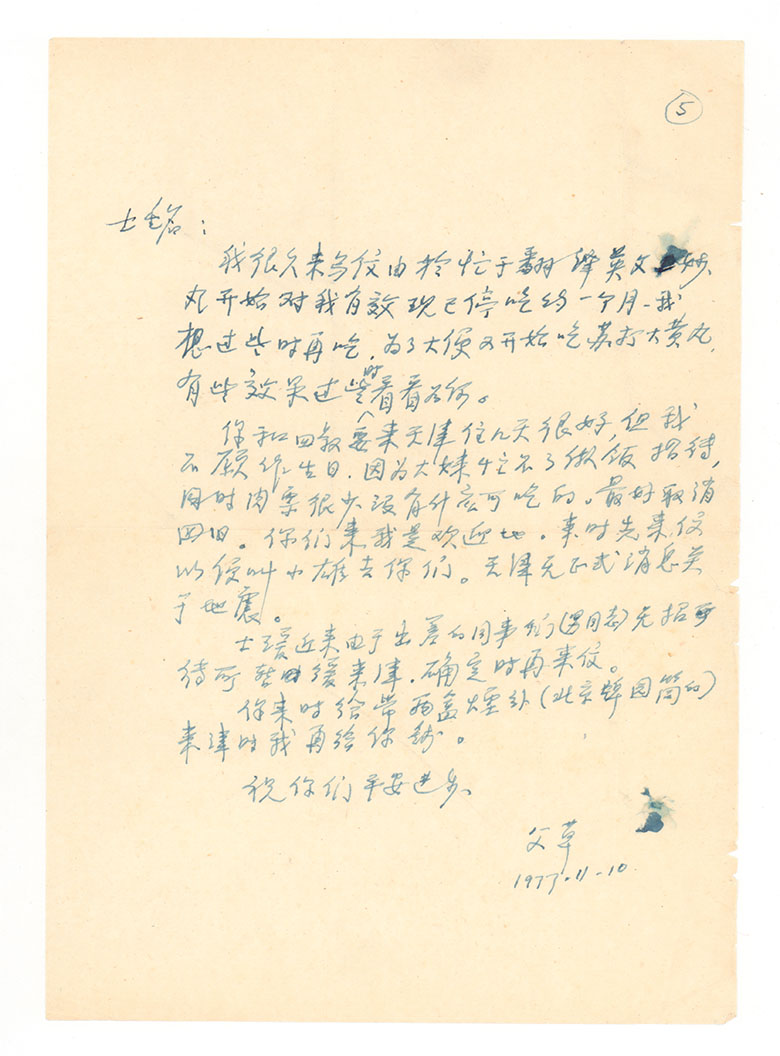 ⑤
士君：
我很久未写信由於忙于翻绎英文
丸开始对我有效现已停吃约一个月，我
想过些时再吃，为了大便又开始吃苏打大黄丸，
有些效果过些时看看如何。
你和四毅要来天津住几天很好，但我
不愿作生日，因为大妹忙不了做饭招待，
同时肉票很少没有什么可吃的。最好取消
四旧。你们来我是欢迎地。来时先来信
以便叫小雄去你们。天津无正式消息关
于地震。
士瑗近来由于出差的同事们无招
待可暂时缓来津，确定时再来信。
你来时给带两盒烟（北京牌园筒的）
来津时我再给你钱。
祝你们平安进步、
父草
1977-11-10